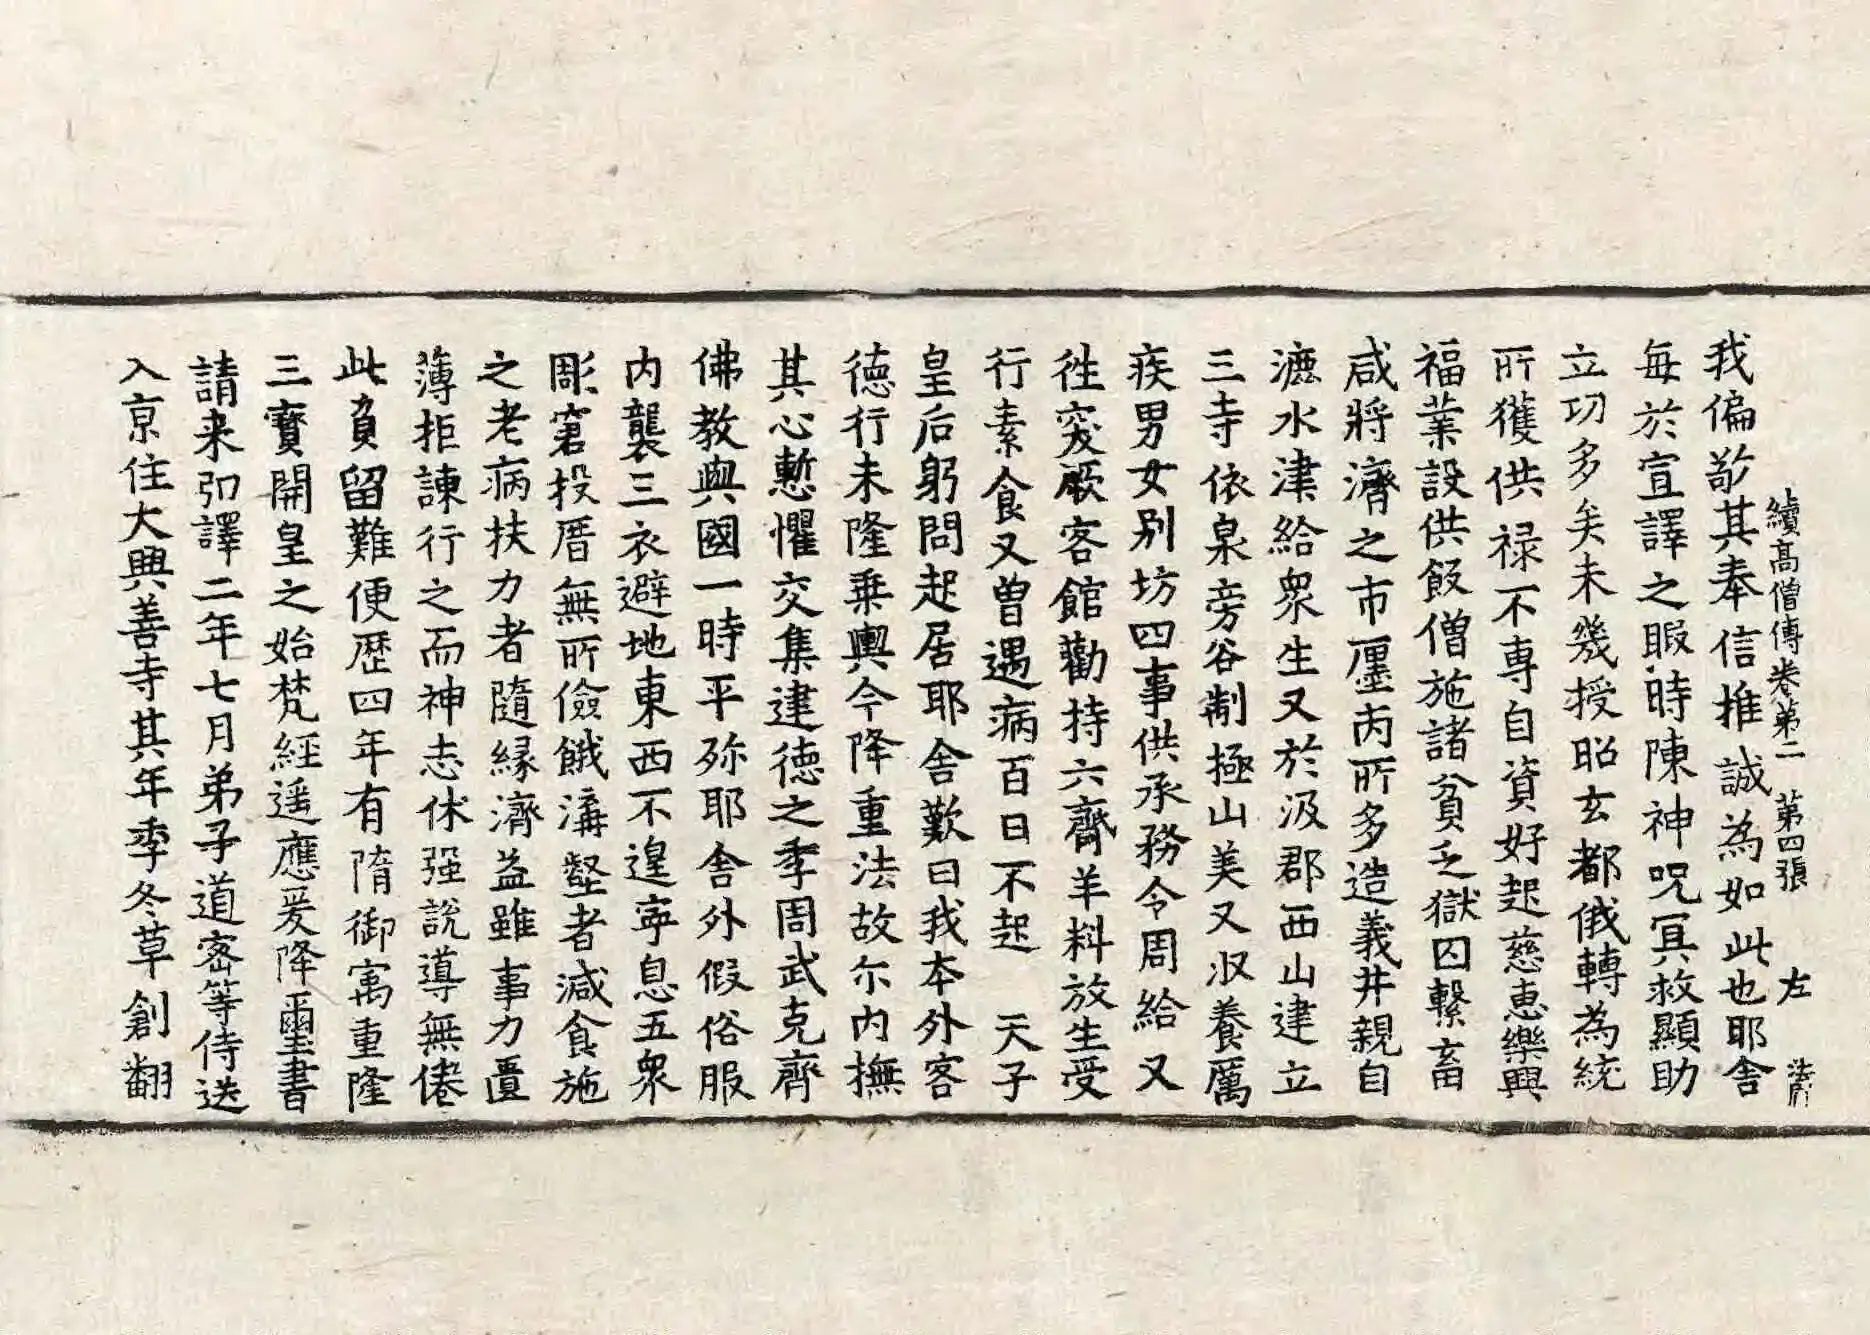 續高僧傳卷第二 第四張 左
我偏敬其奉信推誠為如此也耶舍
每於宣譯之暇時陳神呪冥救顯助
立功多矣未幾授昭玄都俄轉為統
所獲供禄不専自資好起慈惠樂興
福業設供飯僧施諸貧乏獄囚繫畜
咸將濟之市㕓丙所多造義井親自
漉水津給衆生又於汲郡西山建立
三寺依泉旁谷制極山美又収養厲
疾男女別坊四事供承務令周給又
徃突厥客館勸持六齋羊料放生受
行素食又曽遇病百日不起 天子
皇后躬問起居耶舍歎曰我本外客
德行未隆乗輿今降重法故尒内撫
其心慙懼交集建德之季周武克齊
佛教與國一時平殄耶舍外假俗服
内襲三衣避地東西不遑寧息五衆
彫窘投厝無所儉餓溝壑者減食施
之老病扶力者隨縁濟益雖事力匱
薄拒諫行之而神志休强說導無倦
此負留難便歴四年有隋御寓重隆
三寳開皇之始梵經遥應爰降璽書
請来弘譯二年七月弟子道密等侍送
入京住大興善寺其年季冬草創翻